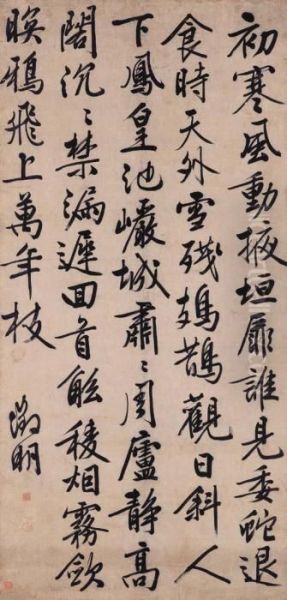 初寒風動掖垣扉誰見委蛇退
食時天外雪殘鳷鵲觀日斜人
下鳳皇池巖城肅〻周廬靜高
閣沉〻禁漏遲回首觚稜烟霧斂
暝鴉飛上萬年枝
徵明